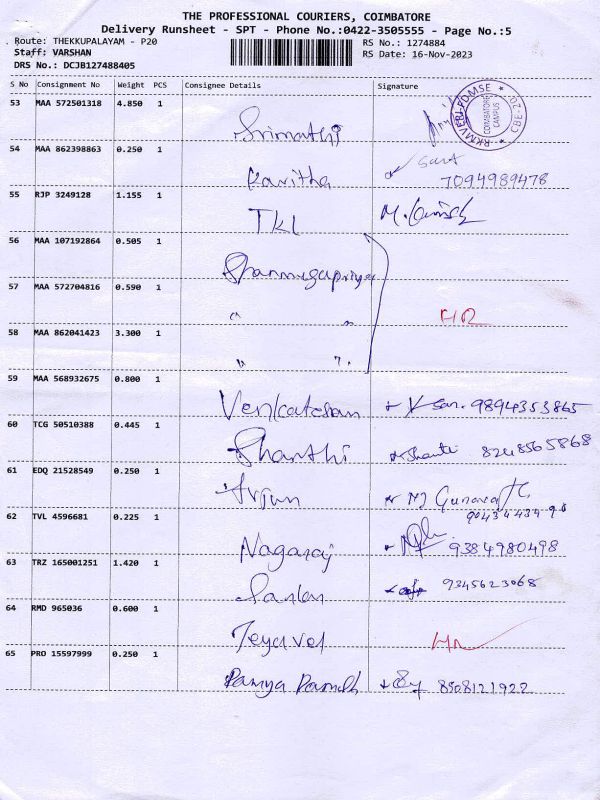 THE PROFESSIONAL COURIERS, COIMBATORE
Delivery Runsheet - SPT - Phone No.:0422-3505555 - Page No.:5
Route: THEKKUPALAYAM - P20 RS No.: 1274884
Staff: VARSHAN RS Date: 16-Nov-2023
DRS No.: DCJB127488405
S No Consignment No Weight PCS Consignee Details Signature
53 MAA 572501318 4.850 1 Srimathi
RKMVERI-FDMSE CBE-20 COIMBATORE CAMPUS
54 MAA 862398863 0.250 1 Kavitha 7094989478
55 RJP 3249128 1.155 1 TKL
56 MAA 107192864 0.505 1 Shanmugapriya
57 MAA 572704816 0.590 1 " " HR
58 MAA 862041423 3.300 1 " "
59 MAA 568932675 0.800 1 Venkatesan 9894353865
60 TCG 50510388 0.445 1 Shanthi Shanti 8248565868
61 EDQ 21528549 0.250 1 Arjun
62 TVL 4596681 0.225 1 Nagaraj 9384980498
63 TRZ 165001251 1.420 1 9345623068
64 RMD 965036 0.600 1 Jeyavel
65 PRO 15597999 0.250 1 Ramya 8508121922